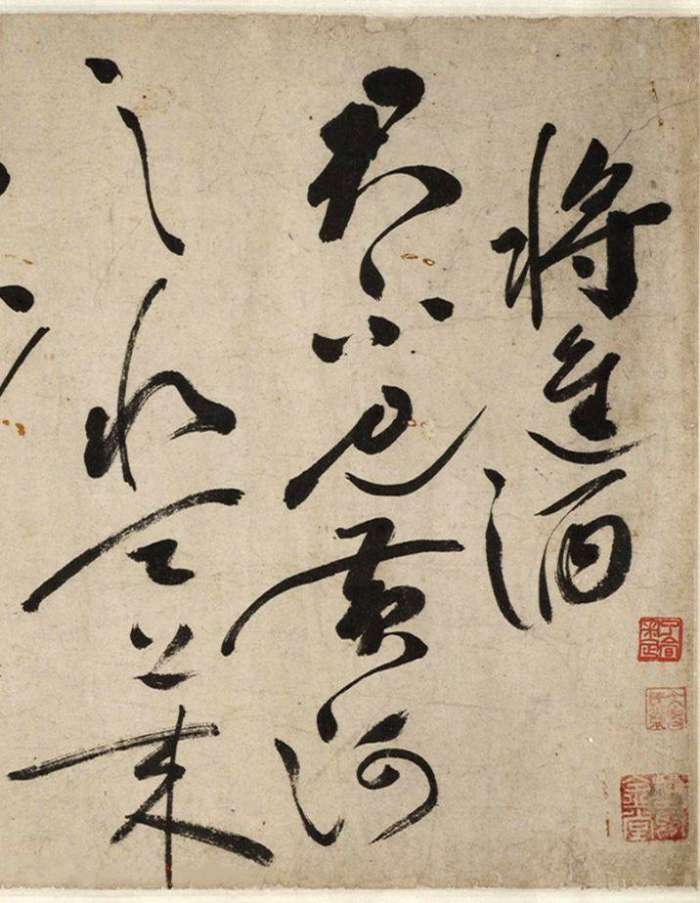 將進酒
君不見黃河
之水天上來